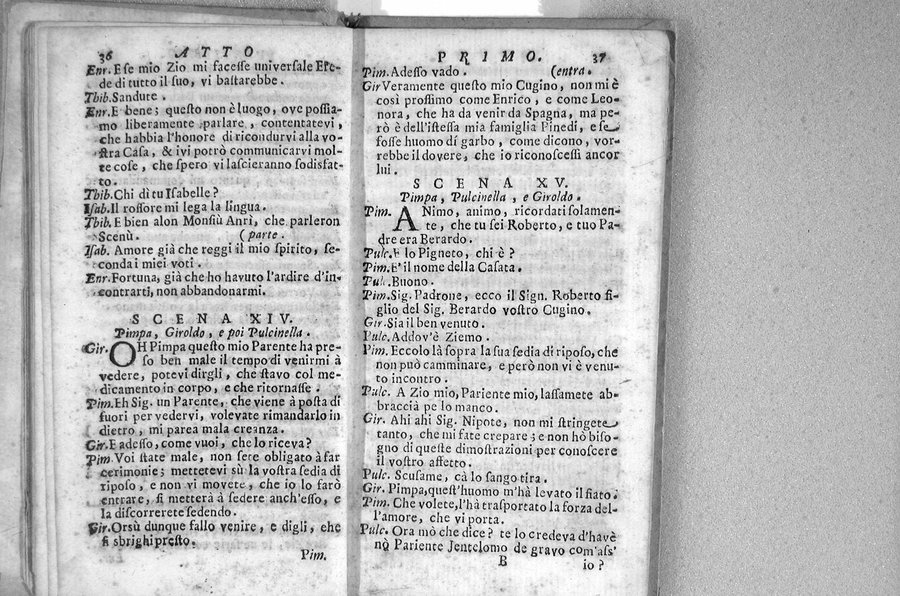 36 ATTO
Enr. E se mio Zio mi facesse universale Ere-
de di tutto il suo, vi bastarebbe.
Tbib. Sandute.
Enr. E bene; questo non è luogo, ove possia-
mo liberamente parlare, contentatevi,
che habbia l'honore di ricondurvi alla vo-
stra Casa, & ivi potrò communicarvi mol-
te cose, che spero vi lascieranno sodisfat-
to.
Tbib. Chi di tu Isabelle?
Isab. Il rossore mi lega la lingua.
Tbib. E bien alon Monsiù Anri, che parleron
Scenù. (parte.
Isab. Amore già che reggi il mio spirito, se-
conda i miei voti.
Enr. Fortuna, già che ho havuto l'ardire d'in-
contrarti, non abbandonarmi.
SCENA XIV.
Pimpa, Giroldo, e poi Pulcinella.
Gir. OH Pimpa questo mio Parente ha pre-
so ben male il tempo di venirmi à
vedere, potevi dirgli, che stavo col me-
dicamento in corpo, e che ritornasse.
Pim. Eh Sig. un Parente, che viene à posta di
fuori per vedervi, volevate rimandarlo in
dietro, mi parea mala creanza.
Gir. E adesso, come vuoi, che lo riceva?
Pim. Voi state male, non sete obligato à far
cerimonie; mettetevi sù la vostra sedia di
riposo, e non vi movete, che io lo farò
entrare, si metterà à sedere anch'esso, e
la discorrerete sedendo.
Gir. Orsù dunque fallo venire, e digli, che
si sbrighi presto.
Pim.
PRIMO. 37
Pim. Adesso vado. (entra.
Gir Veramente questo mio Cugino, non mi è
così prossimo come Enrico, e come Leo-
nora, che ha da venir da Spagna, ma pe-
rò è dell'istessa mia famiglia Pinedi, e se
fosse huomo di garbo, come dicono, vor-
rebbe il dovere, che io riconoscessi ancor
lui.
SCENA XV.
Pimpa, Pulcinella, e Giroldo.
Pim. ANimo, animo, ricordati solamen-
te, che tu sei Roberto, e tuo Pa-
dre era Berardo.
Pulc. E lo Pigneto, chi è?
Pim. E' il nome della Casata.
Pul. Buono.
Pim. Sig. Padrone, ecco il Sign. Roberto fi-
glio del Sig. Berardo vostro Cugino.
Gir. Sia il ben venuto.
Pulc. Addov'è Ziemo.
Pim. Eccolo là sopra la sua sedia di riposo, che
non può camminare, e però non vi è venu-
to incontro.
Pulc. A Zio mio, Pariente mio, lassamete ab-
braccià pe lo manco.
Gir. Ahi ahi Sig. Nipote, non mi stringete
tanto, che mi fate crepare; e non hò biso-
gno di queste dimostrazioni per conoscere
il vostro affetto.
Pulc. Scusame, cà lo sango tira.
Gir. Pimpa, quest'huomo m'hà levato il fiato.
Pim. Che volete, l'hà trasportato la forza del-
l'amore, che vi porta.
Pulc. Ora mò che dice? te lo credeva d'havè
nò Pariente Jentelomo de gravo com'ass'
B io?